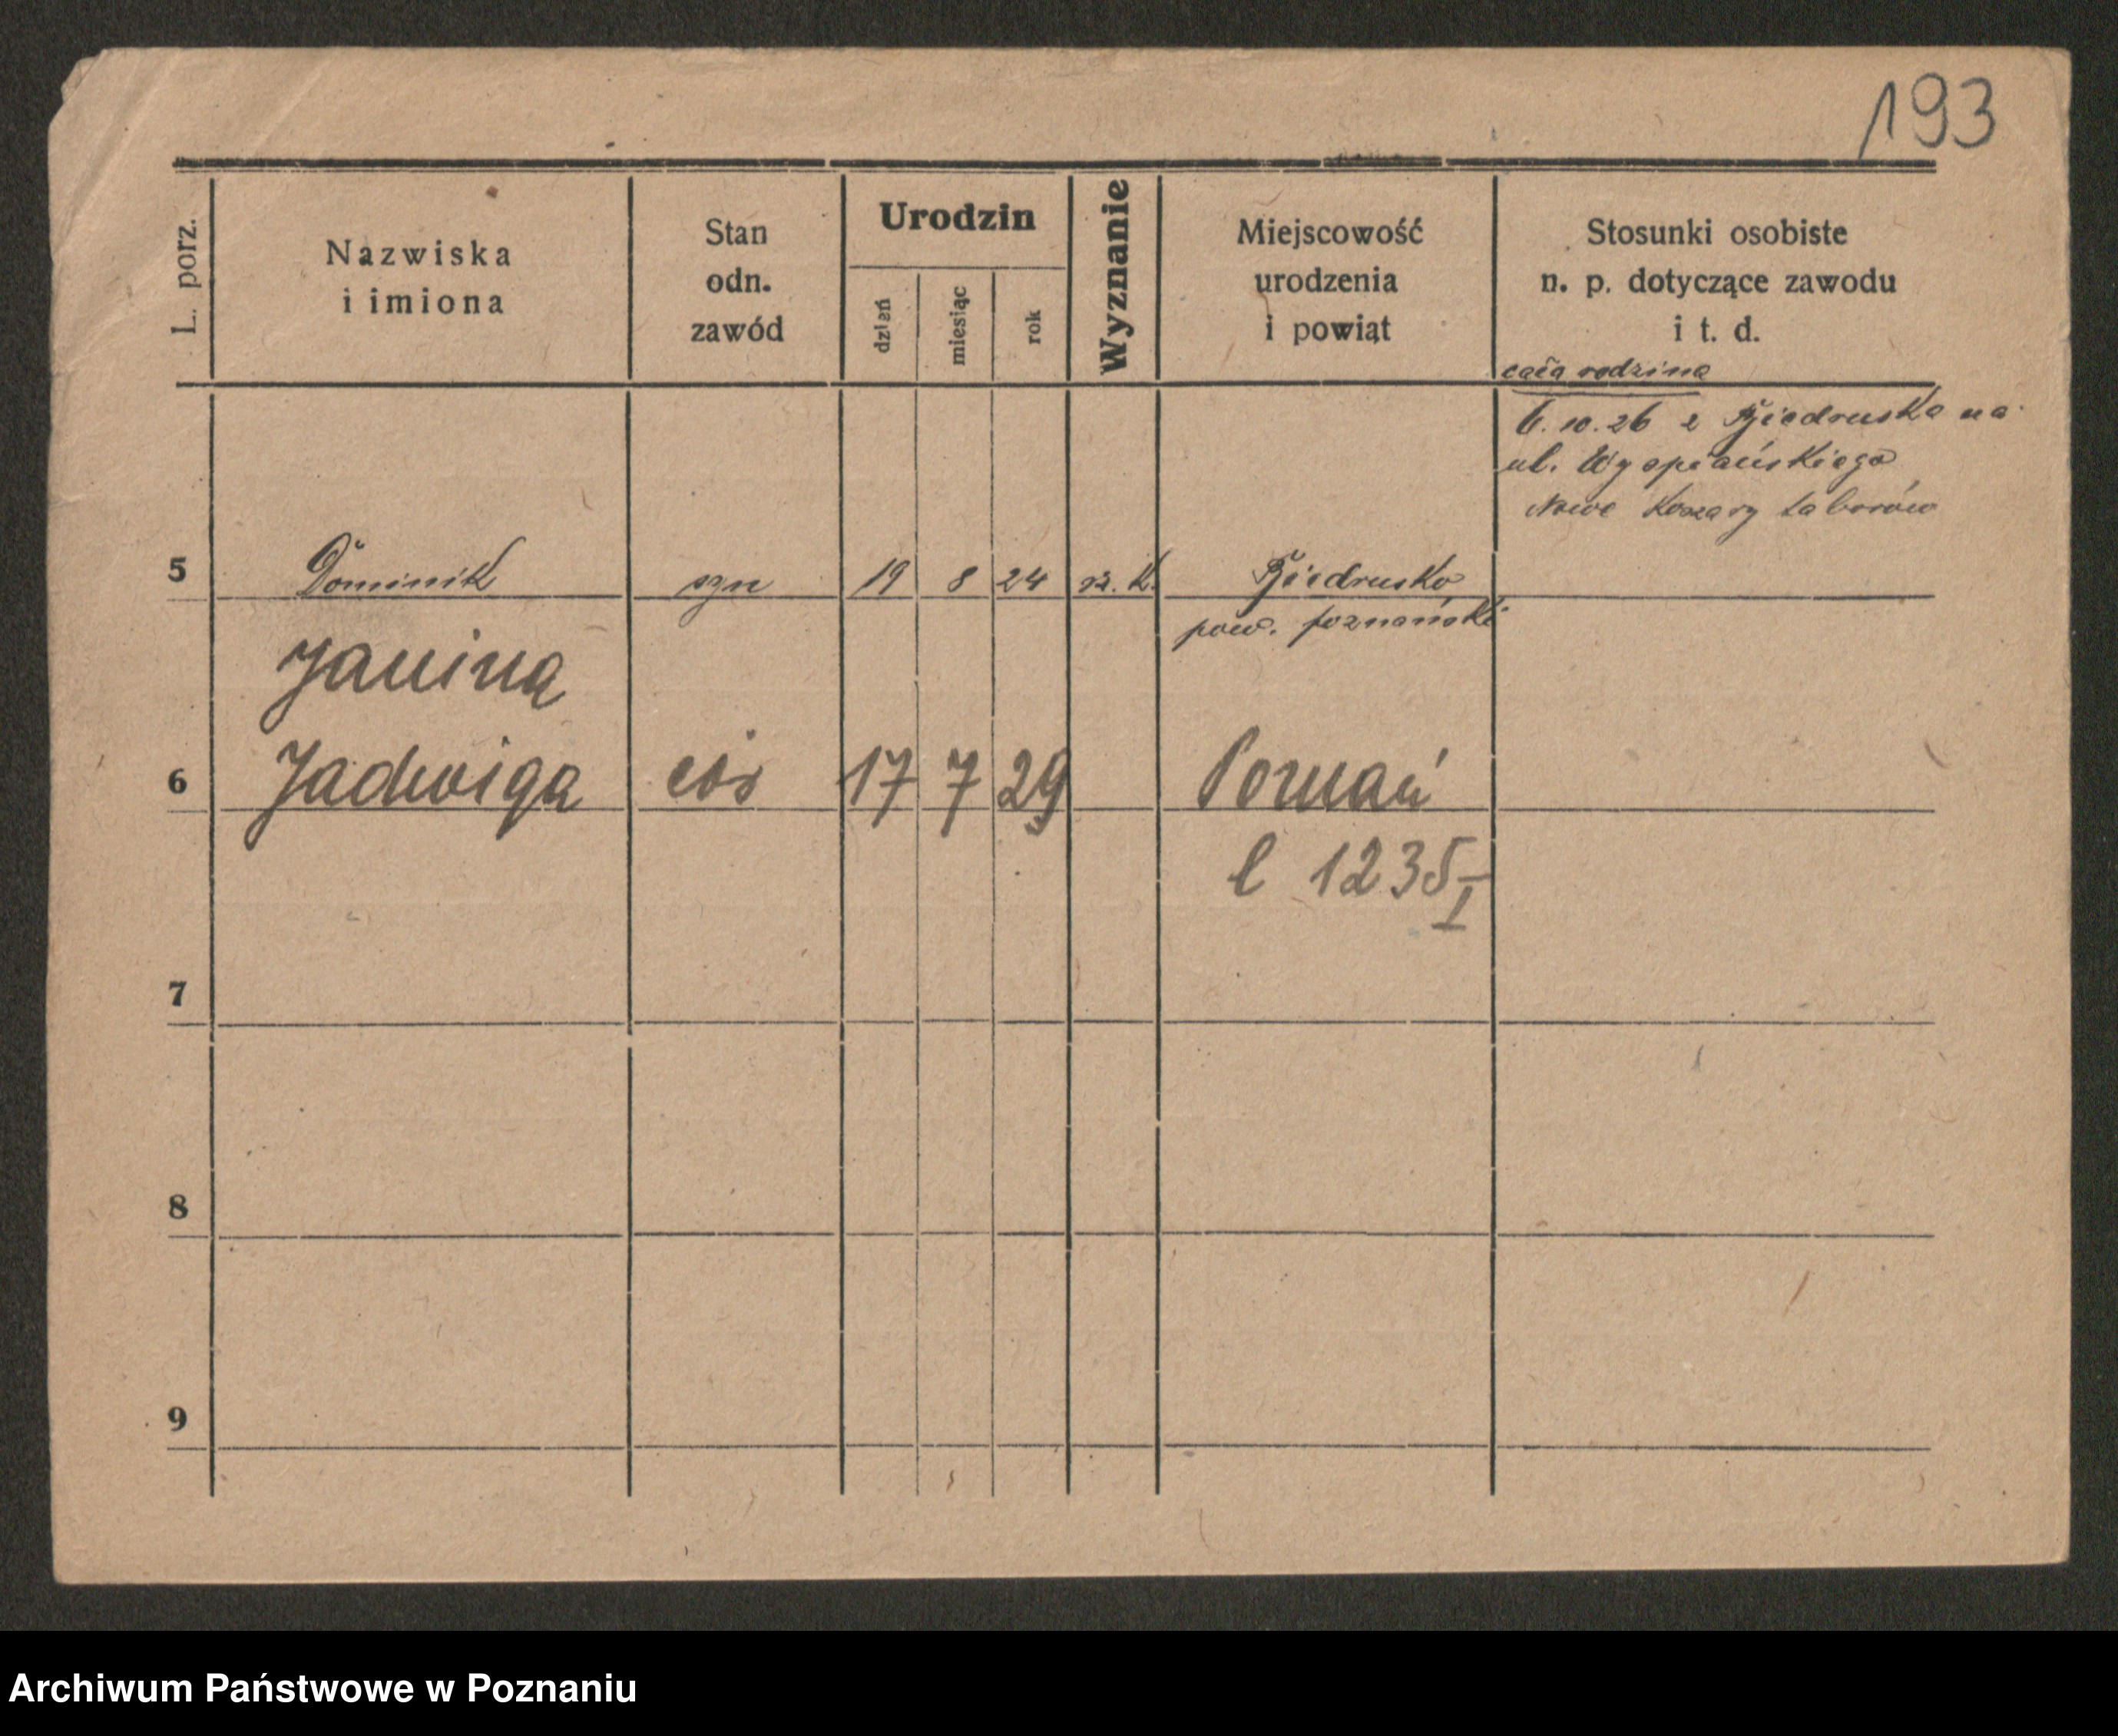 193
L. porz.
Nazwiska
i imiona
Stan
odn.
zawód
Urodzin
dzień
miesiąc
rok
Wyznanie
Miejscowość
urodzenia
i powiat
Stosunki osobiste
n. p. dotyczące zawodu
i t. d.
cała rodzina
6.10.26 z Biedruska na
ul. Wyspiańskiego
Nowe Koszary taborów
5 Dominik syn 19 8 24 rz. k. Biedrusko
pow. poznański
Janina
6 Jadwiga cór 17 7 29 Poznań
l 1235
I
7
8
9
Archiwum Państwowe w Poznaniu